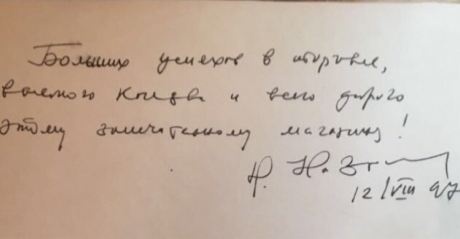 Больших успехов в торговле,
и всего доброго
этому замечательному магазину!
12/VIII 97